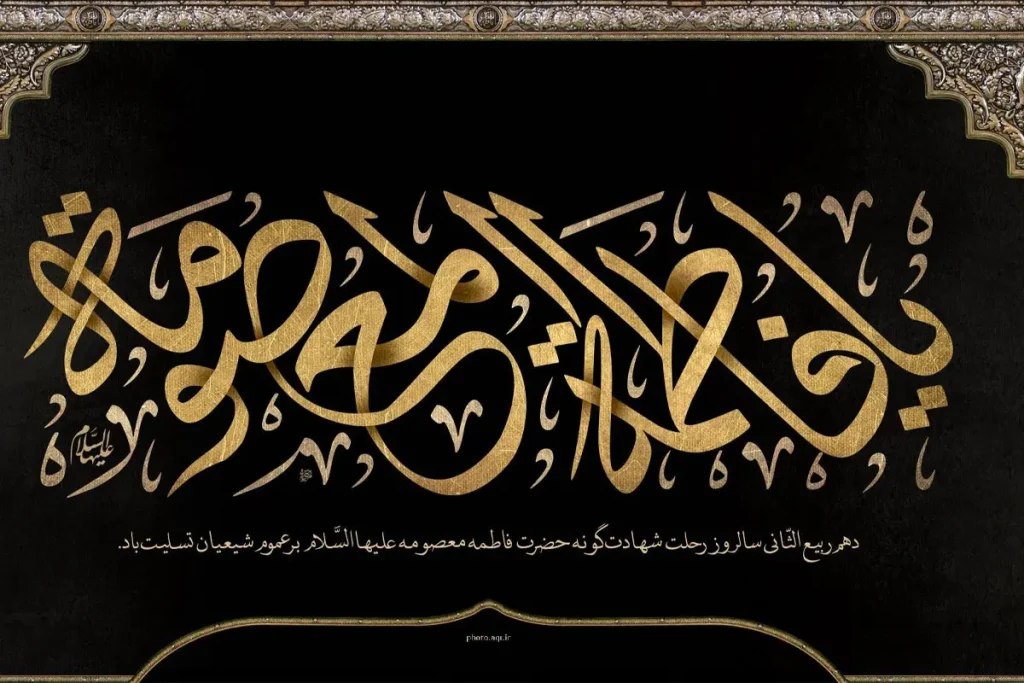 یا فاطمة المعصومة
علیها السلام
دهم ربیع الثّانی سالروز رحلت شهادت‌گونه حضرت فاطمه معصومه علیها السَّلام بر عموم شیعیان تسلیت باد.
photo.aqr.ir